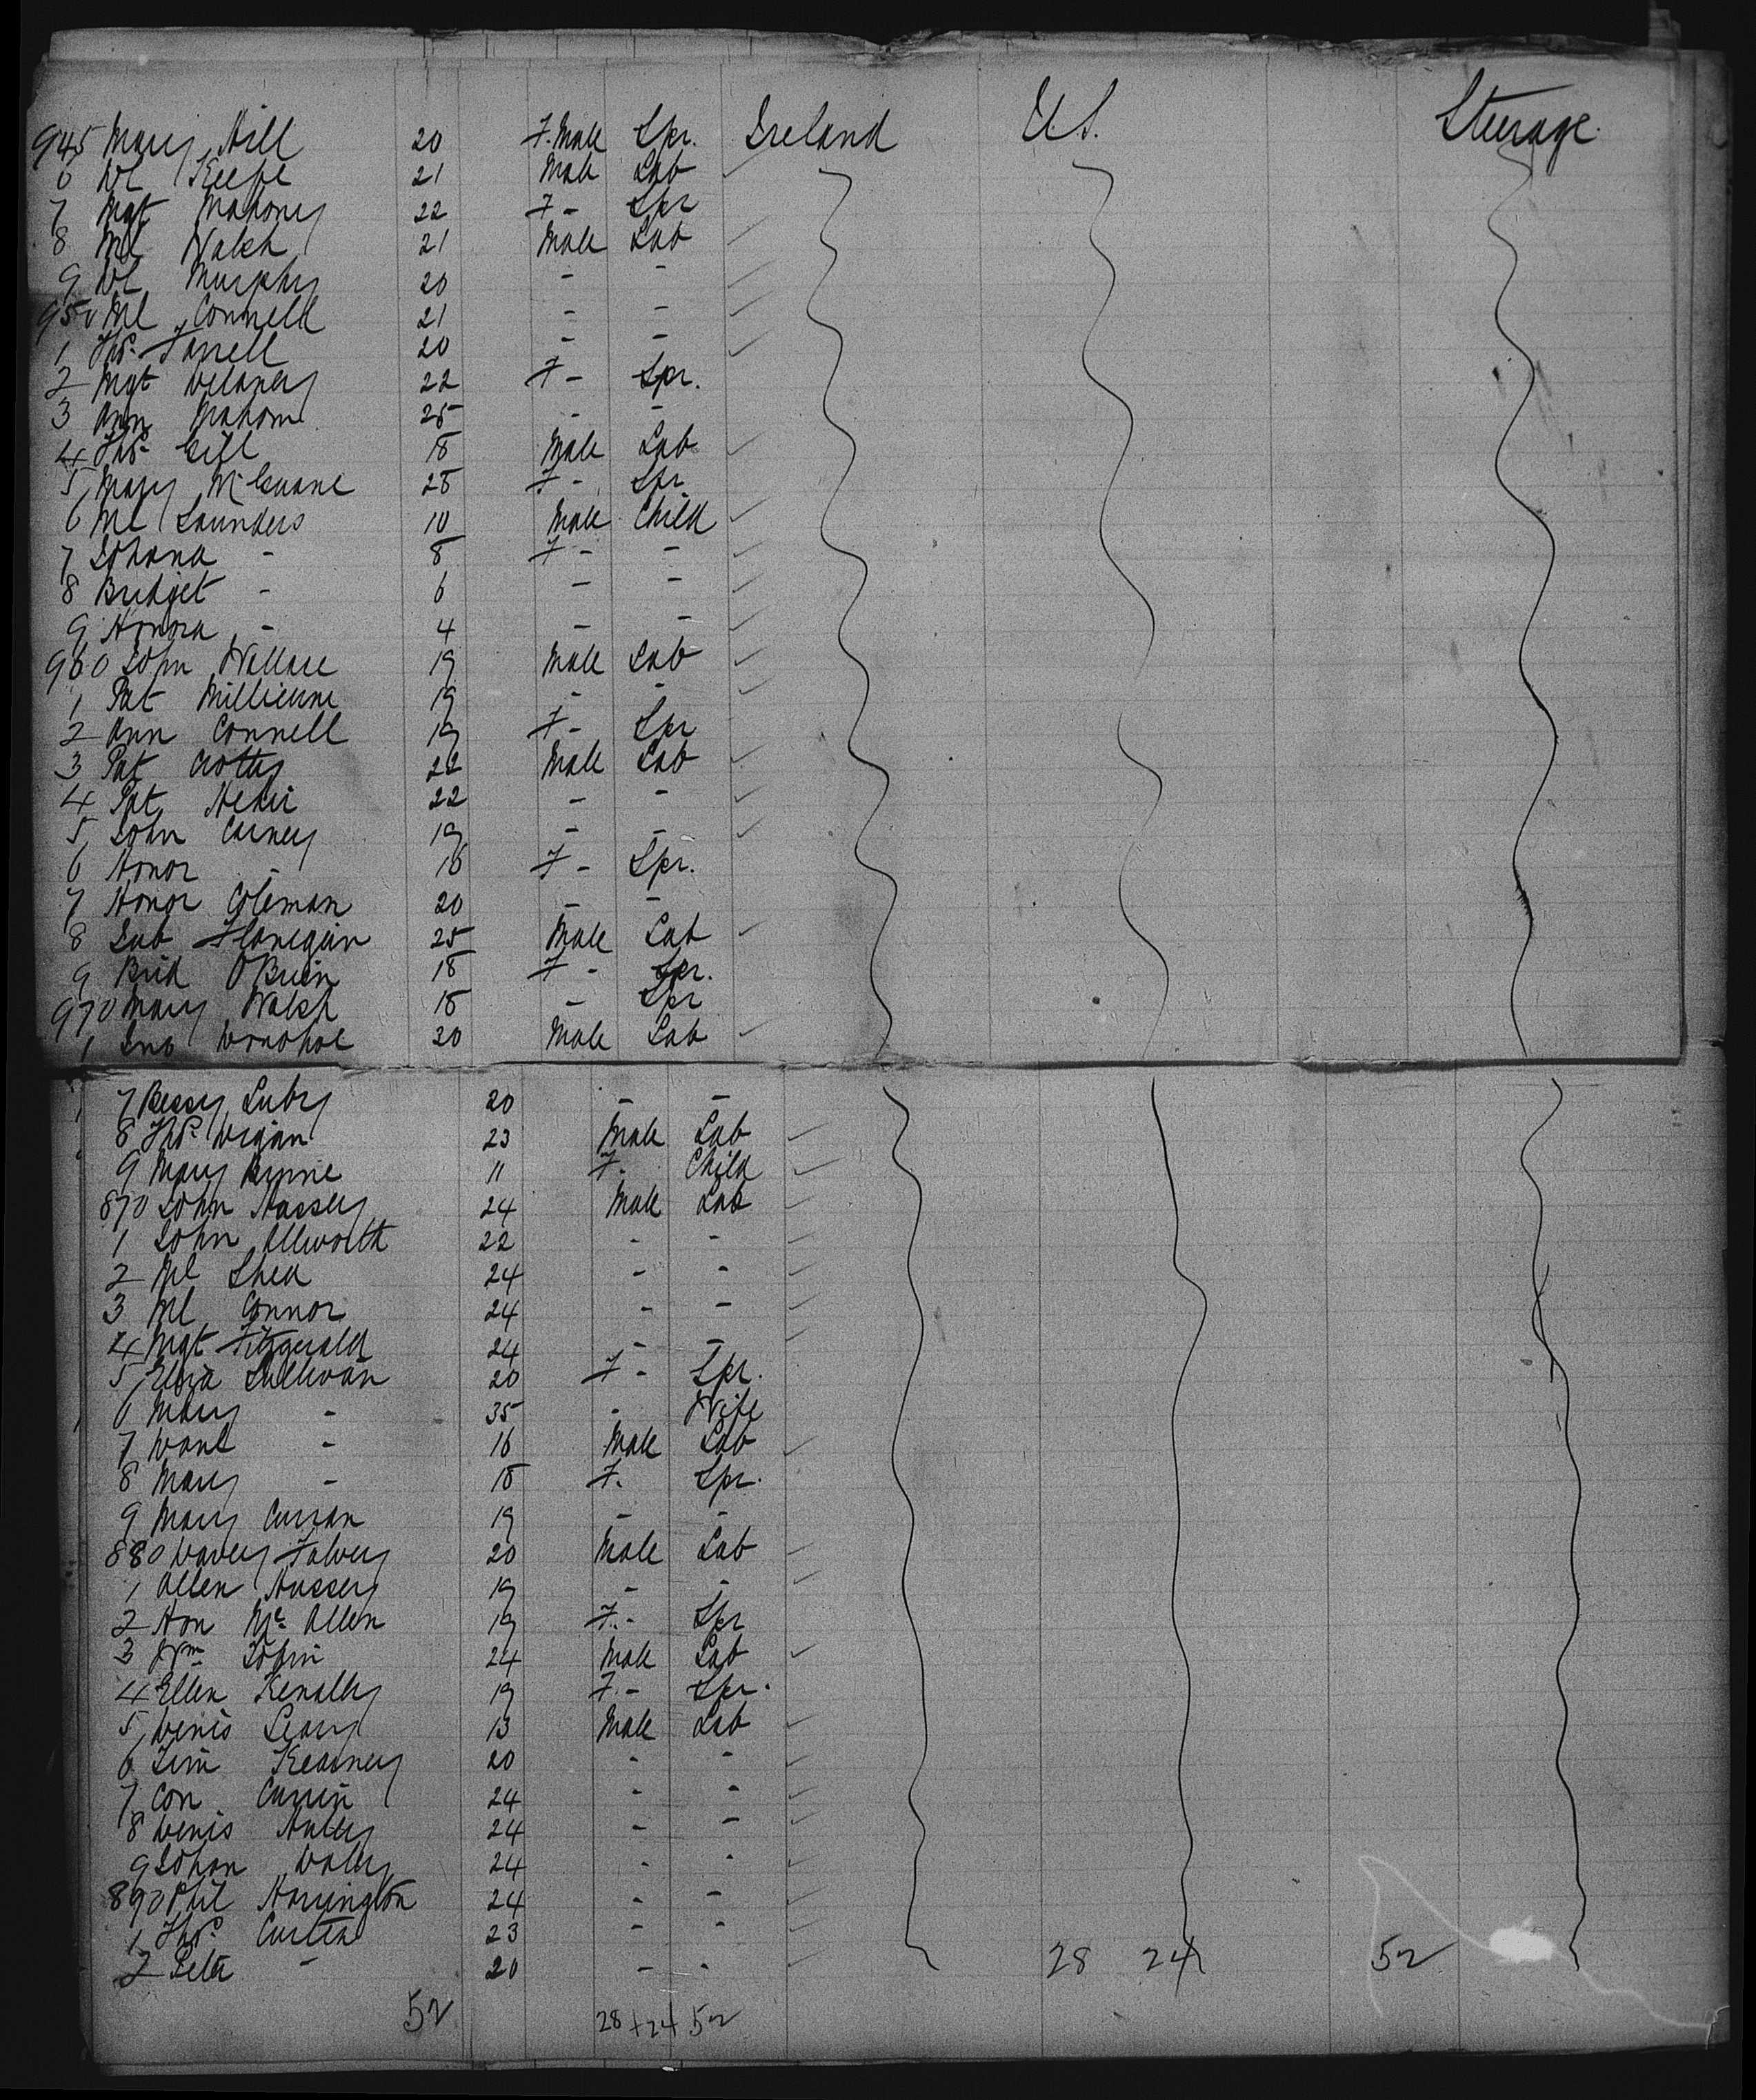 945 Mary Hill 20 F. Male Spr. Ireland U.S. Steerage.
6 Dl Keefe 21 Male Lab
7 Mgt Mahony 22 F - Spr
8 Ml Walsh 21 Male Lab
9 Dl Murphy 20 - -
950 Ml Connell 21 - -
1 Thos. Farrell 20 - -
2 Mgt Delaney 22 F - Spr.
3 Ann 25 - -
4 Thos. 18 Male Lab
5 Mary 28 F - Spr
6 Ml Saunders 10 Male Child
7 Johana - 8 F - -
8 Bridget - 6 - -
9 Honora - 4 - -
960 John Wallace 19 Male Lab
1 Pat 19 - -
2 Ann Connell 19 F - Spr
3 Pat Crotty 22 Male Lab
4 Pat Hehir 22 - -
5 John Carney 19 - -
6 Honor - 16 F - Spr.
7 Honor Coleman 20 - -
8 Flanegan 25 Male Lab
9 Brid O'Brien 18 F - Spr.
970 Mary Walsh 18 - Spr
1 Jno Donohoe 20 Male Lab
7 Bessy Luby 20 - -
8 Thos. 23 Male Lab
9 Mary 11 F. Child
870 John Hussey 24 Male Lab
1 John Allworth 22 - -
2 Ml Shea 24 - -
3 Ml Connor 24 - -
4 Mgt Fitzgerald 24 - -
5 Eliza Sullivan 20 F - Spr.
6 Mary - 35 - Wife
7 Danl - 16 Male Lab
8 Mary - 18 F. Spr.
9 Mary Curran 19 - -
880 Davey Falvey 20 Male Lab
1 Allen Hussey 19 - -
2 Hon Mc Allen 19 F. - Spr
3 Wm 24 Male Lab
4 Ellen Kenally 19 F. - Spr.
5 Denis Leary 13 Male Lab
6 Tim Kearney 20 - -
7 Con Curren 24 - -
8 Denis 24 - -
9 Johan Daly 24 - -
890 Phil Harrington 24 - -
1 Thos. Curtin 23 - -
2 Peter - 20 - - 28 24 52
52 28 + 24 52